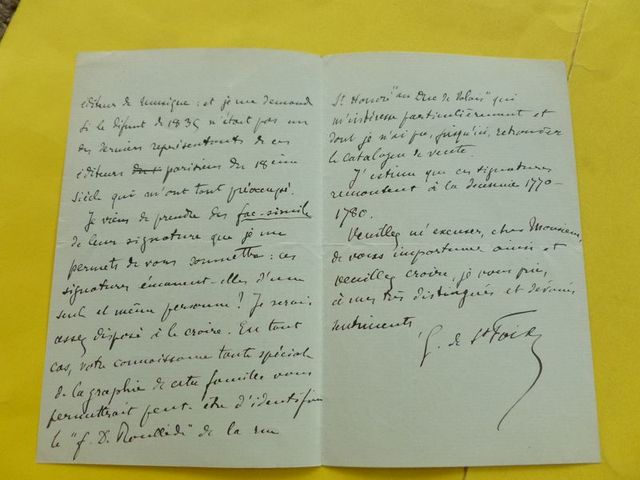 éditeur de musique : et je me demande
si le défunt de 1835 n'était pas un
des derniers représentants de ces
éditeurs parisiens du 18ème
siècle qui m'ont tant préoccupé.
Je viens de prendre des fac-simile
de leur signature que je me
permets de vous soumettre : ces
signatures émanent-elles d'une
seule et même personne ? Je serais
assez disposé à le croire. En tout
cas, votre connaissance toute spéciale
de la graphie de cette famille vous
permettrait peut-être d'identifier
le "f. D. Roullède" de la rue
St Honoré "au Duc de Valois" qui
m'intéresse particulièrement et
dont je n'ai pu, jusqu'ici, retrouver
le catalogue de vente.
J'estime que ces signatures
remontent à la décennie 1770-
1780.
Veuillez m'excuser, cher Monsieur,
de vous importuner ainsi et
veuillez croire, je vous prie,
à mes très distingués et dévoués
sentiments
G. de St Foix